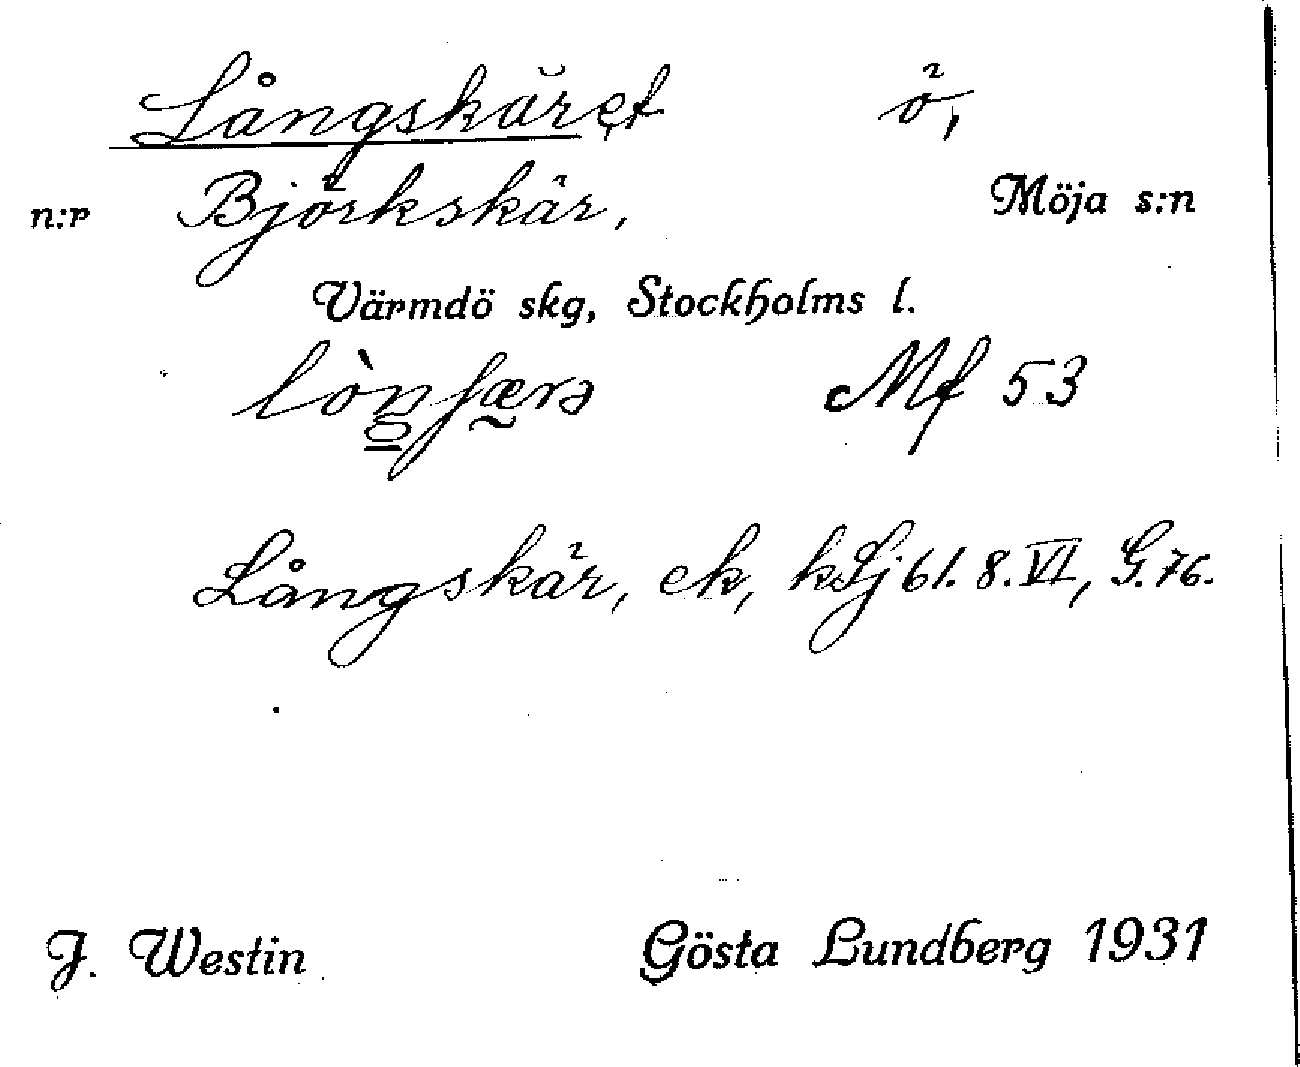 Långskäret ö,
n:r Björkskär, Möja s:n
Värmdö skg, Stockholms l.
Mf 53
Långskär, ek, kSj 61. 8. VI, G. 76.
J. Westin Gösta Lundberg 1931